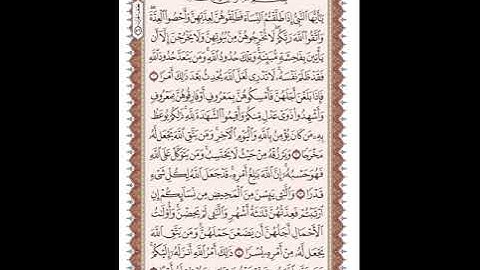 يَٰٓأَيُّهَا ٱلنَّبِيُّ إِذَا طَلَّقْتُمُ ٱلنِّسَآءَ فَطَلِّقُوهُنَّ لِعِدَّتِهِنَّ وَأَحْصُوا۟ ٱلْعِدَّةَ
وَٱتَّقُوا۟ ٱللَّهَ رَبَّكُمْ لَا تُخْرِجُوهُنَّ مِنۢ بُيُوتِهِنَّ وَلَا يَخْرُجْنَ إِلَّآ أَن
يَأْتِينَ بِفَٰحِشَةٍ مُّبَيِّنَةٍ وَتِلْكَ حُدُودُ ٱللَّهِ وَمَن يَتَعَدَّ حُدُودَ ٱللَّهِ
فَقَدْ ظَلَمَ نَفْسَهُۥ لَا تَدْرِى لَعَلَّ ٱللَّهَ يُحْدِثُ بَعْدَ ذَٰلِكَ أَمْرًا ۝١
فَإِذَا بَلَغْنَ أَجَلَهُنَّ فَأَمْسِكُوهُنَّ بِمَعْرُوفٍ أَوْ فَارِقُوهُنَّ بِمَعْرُوفٍ
وَأَشْهِدُوا۟ ذَوَىْ عَدْلٍ مِّنكُمْ وَأَقِيمُوا۟ ٱلشَّهَٰدَةَ لِلَّهِ ذَٰلِكُمْ يُوعَظُ
بِهِۦ مَن كَانَ يُؤْمِنُ بِٱللَّهِ وَٱلْيَوْمِ ٱلْءَاخِرِ وَمَن يَتَّقِ ٱللَّهَ يَجْعَل لَّهُۥ
مَخْرَجًا ۝٢ وَيَرْزُقْهُ مِنْ حَيْثُ لَا يَحْتَسِبُ وَمَن يَتَوَكَّلْ عَلَى ٱللَّهِ
فَهُوَ حَسْبُهُۥٓ إِنَّ ٱللَّهَ بَٰلِغُ أَمْرِهِۦ قَدْ جَعَلَ ٱللَّهُ لِكُلِّ شَىْءٍ
قَدْرًا ۝٣ وَٱلَّٰٓـِٔى يَئِسْنَ مِنَ ٱلْمَحِيضِ مِن نِّسَآئِكُمْ إِنِ
ٱرْتَبْتُمْ فَعِدَّتُهُنَّ ثَلَٰثَةُ أَشْهُرٍ وَٱلَّٰٓـِٔى لَمْ يَحِضْنَ وَأُو۟لَٰتُ
ٱلْأَحْمَالِ أَجَلُهُنَّ أَن يَضَعْنَ حَمْلَهُنَّ وَمَن يَتَّقِ ٱللَّهَ
يَجْعَل لَّهُۥ مِنْ أَمْرِهِۦ يُسْرًا ۝٤ ذَٰلِكَ أَمْرُ ٱللَّهِ أَنزَلَهُۥٓ إِلَيْكُمْ